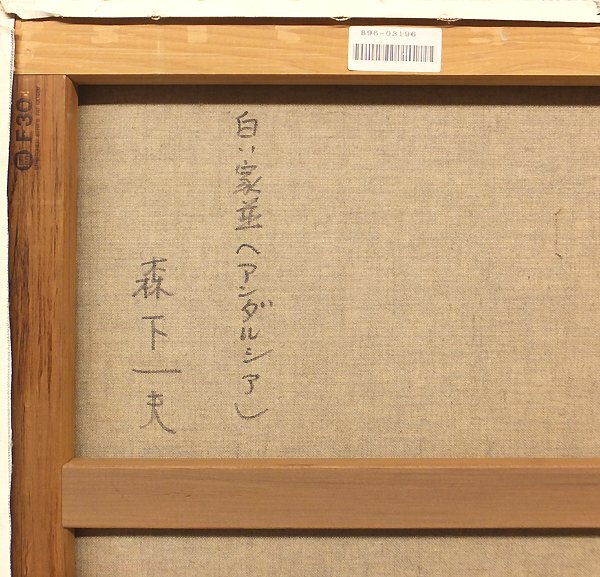 B96-03196
F30
白い家並（アンダルシア）
森下一夫